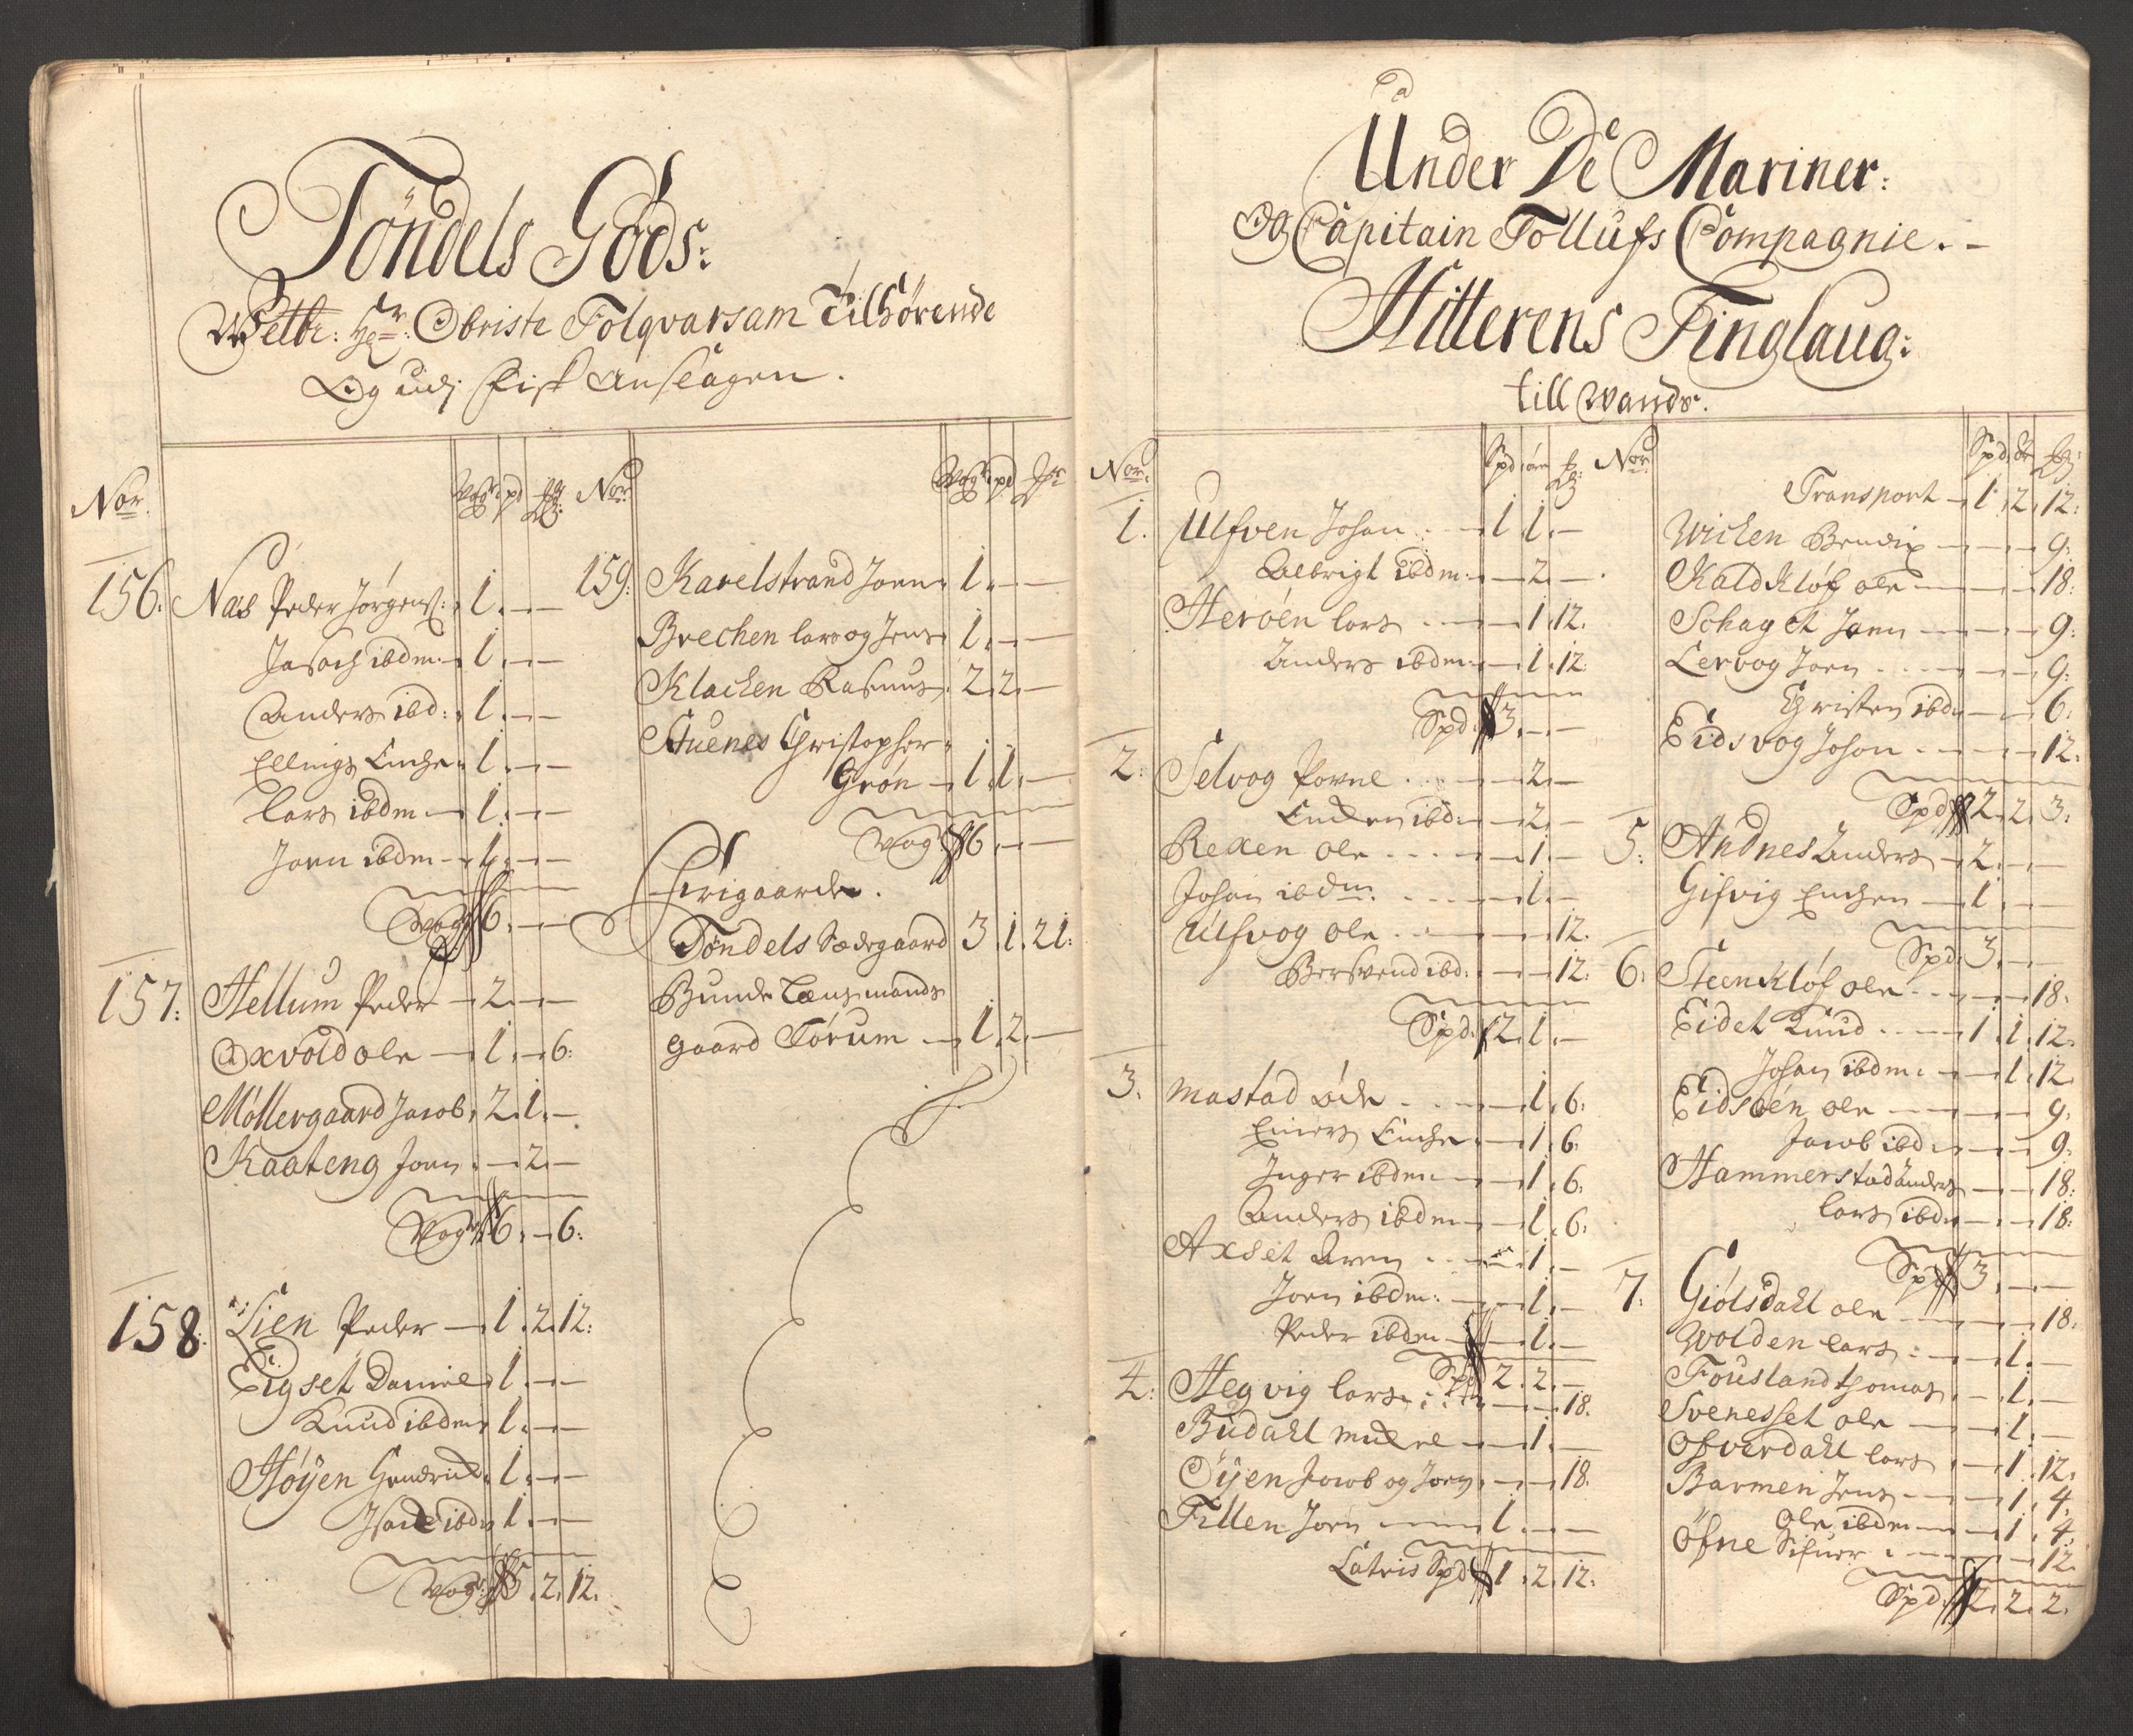 Töndels Gods:
Wellb: Her: Obriste Tolqvarsam Tilhörende
Og udj fisk anslagen.
Nor. Vog pd Nor
156. Næs Peder Jörgens: 1. — —
Jacob ibdm 1. — —
Anders ibd: 1. — —
Ellings Enche 1. — —
Lars ibdm 1. — —
Joen ibdm 1. — —
Vog 6. — —
157. Hellum Peder — 2. — —
Oxvold ole — 1. — 6:
Möllergaard Jacob 2. 1. —
Kaateng Joen — 2. —
Vog 6. — 6:
158. Lien Peder — 1. 2. 12:
Eigset Daniel 1. — —
Knud ibdm 1. — —
Höyen Hendrick 1. — —
Isach ibd 1. — —
Vog 5. 2. 12.
Vog pd
159. Karelstrand Joen 1. — —
Brechen lars og Jens 1. — —
Klachen Rasmus 2. 2. —
Stuenes Christopher
Grön — 1. 1. —
Vog 6. — —
Frigaarde.
Töndels Sædegaard 3. 1. 21:
Bunde Lensmands
gaard Förum — 1. 2. —
Under De Mariner:
Og Capitain Tollufs Compagnie. —
Hitterens Tinglaug:
till Wands.
Nor. Spd ör Nor
1. Ulfven Johan — 1 1. —
Albrigt ibdm — 2. —
Heröen lars — 1. 12.
Anders ibdm — 1. 12.
Spd 3. — —
2. Selvog Povne — 2. —
Enchen ibd: — 2. —
Rexen ole — 1. —
Johan ibdm — 1. —
Ulfvog ole — 12.
Bersvend ibd: — 12:
Spd: 2. 1. —
3. Mastad — 1. 6:
Einers Enche — 1. 6:
Inger ibdm — 1. 6:
Anders ibdm — 1. 6:
Axset Aren — 1. —
Joen ibdm: — 1. —
Peder ibdm — 1. —
Spd 2. 2. —
4. Hegvig lars — 18.
Budahl — 1. —
Öyen Jacob og Joen — 18.
Fillen Joen — 1. — —
Latris Spd 1. 2. 12:
Spd ör
Transport — 1. 2. 12:
Wichen Bendix — 9:
Kaldklöf ole — 18:
Schaget Joen — 9:
Lervog Joen — 9:
Christen ibd: — 6:
Eidsvog Johan — 12:
Spd 2. 2. 3:
5. Andnes Anders — 2. — —
Gifvig Enchen — 1. — —
Spd 3. — —
6. Steenklöf ole — 18.
Eidet Knud — 1. 1. 12.
Johan ibdm — 1. 12.
Eidsöen ole — 9:
Jacob ibd — 9:
Hammerstad Anders — 18:
lars ibd — 18:
Spd 3. — —
7. Giölsdahl ole — 18.
Wolden lars — 1. —
Fousland thomas — 1. —
Svenesset ole — 1. —
Ofverdahl lars — 1. 12.
Barmen Jens — 1. 4.
ole ibdm — 1. 4.
Öfne Sifuer — 12.
Spd 2. 2. 2.